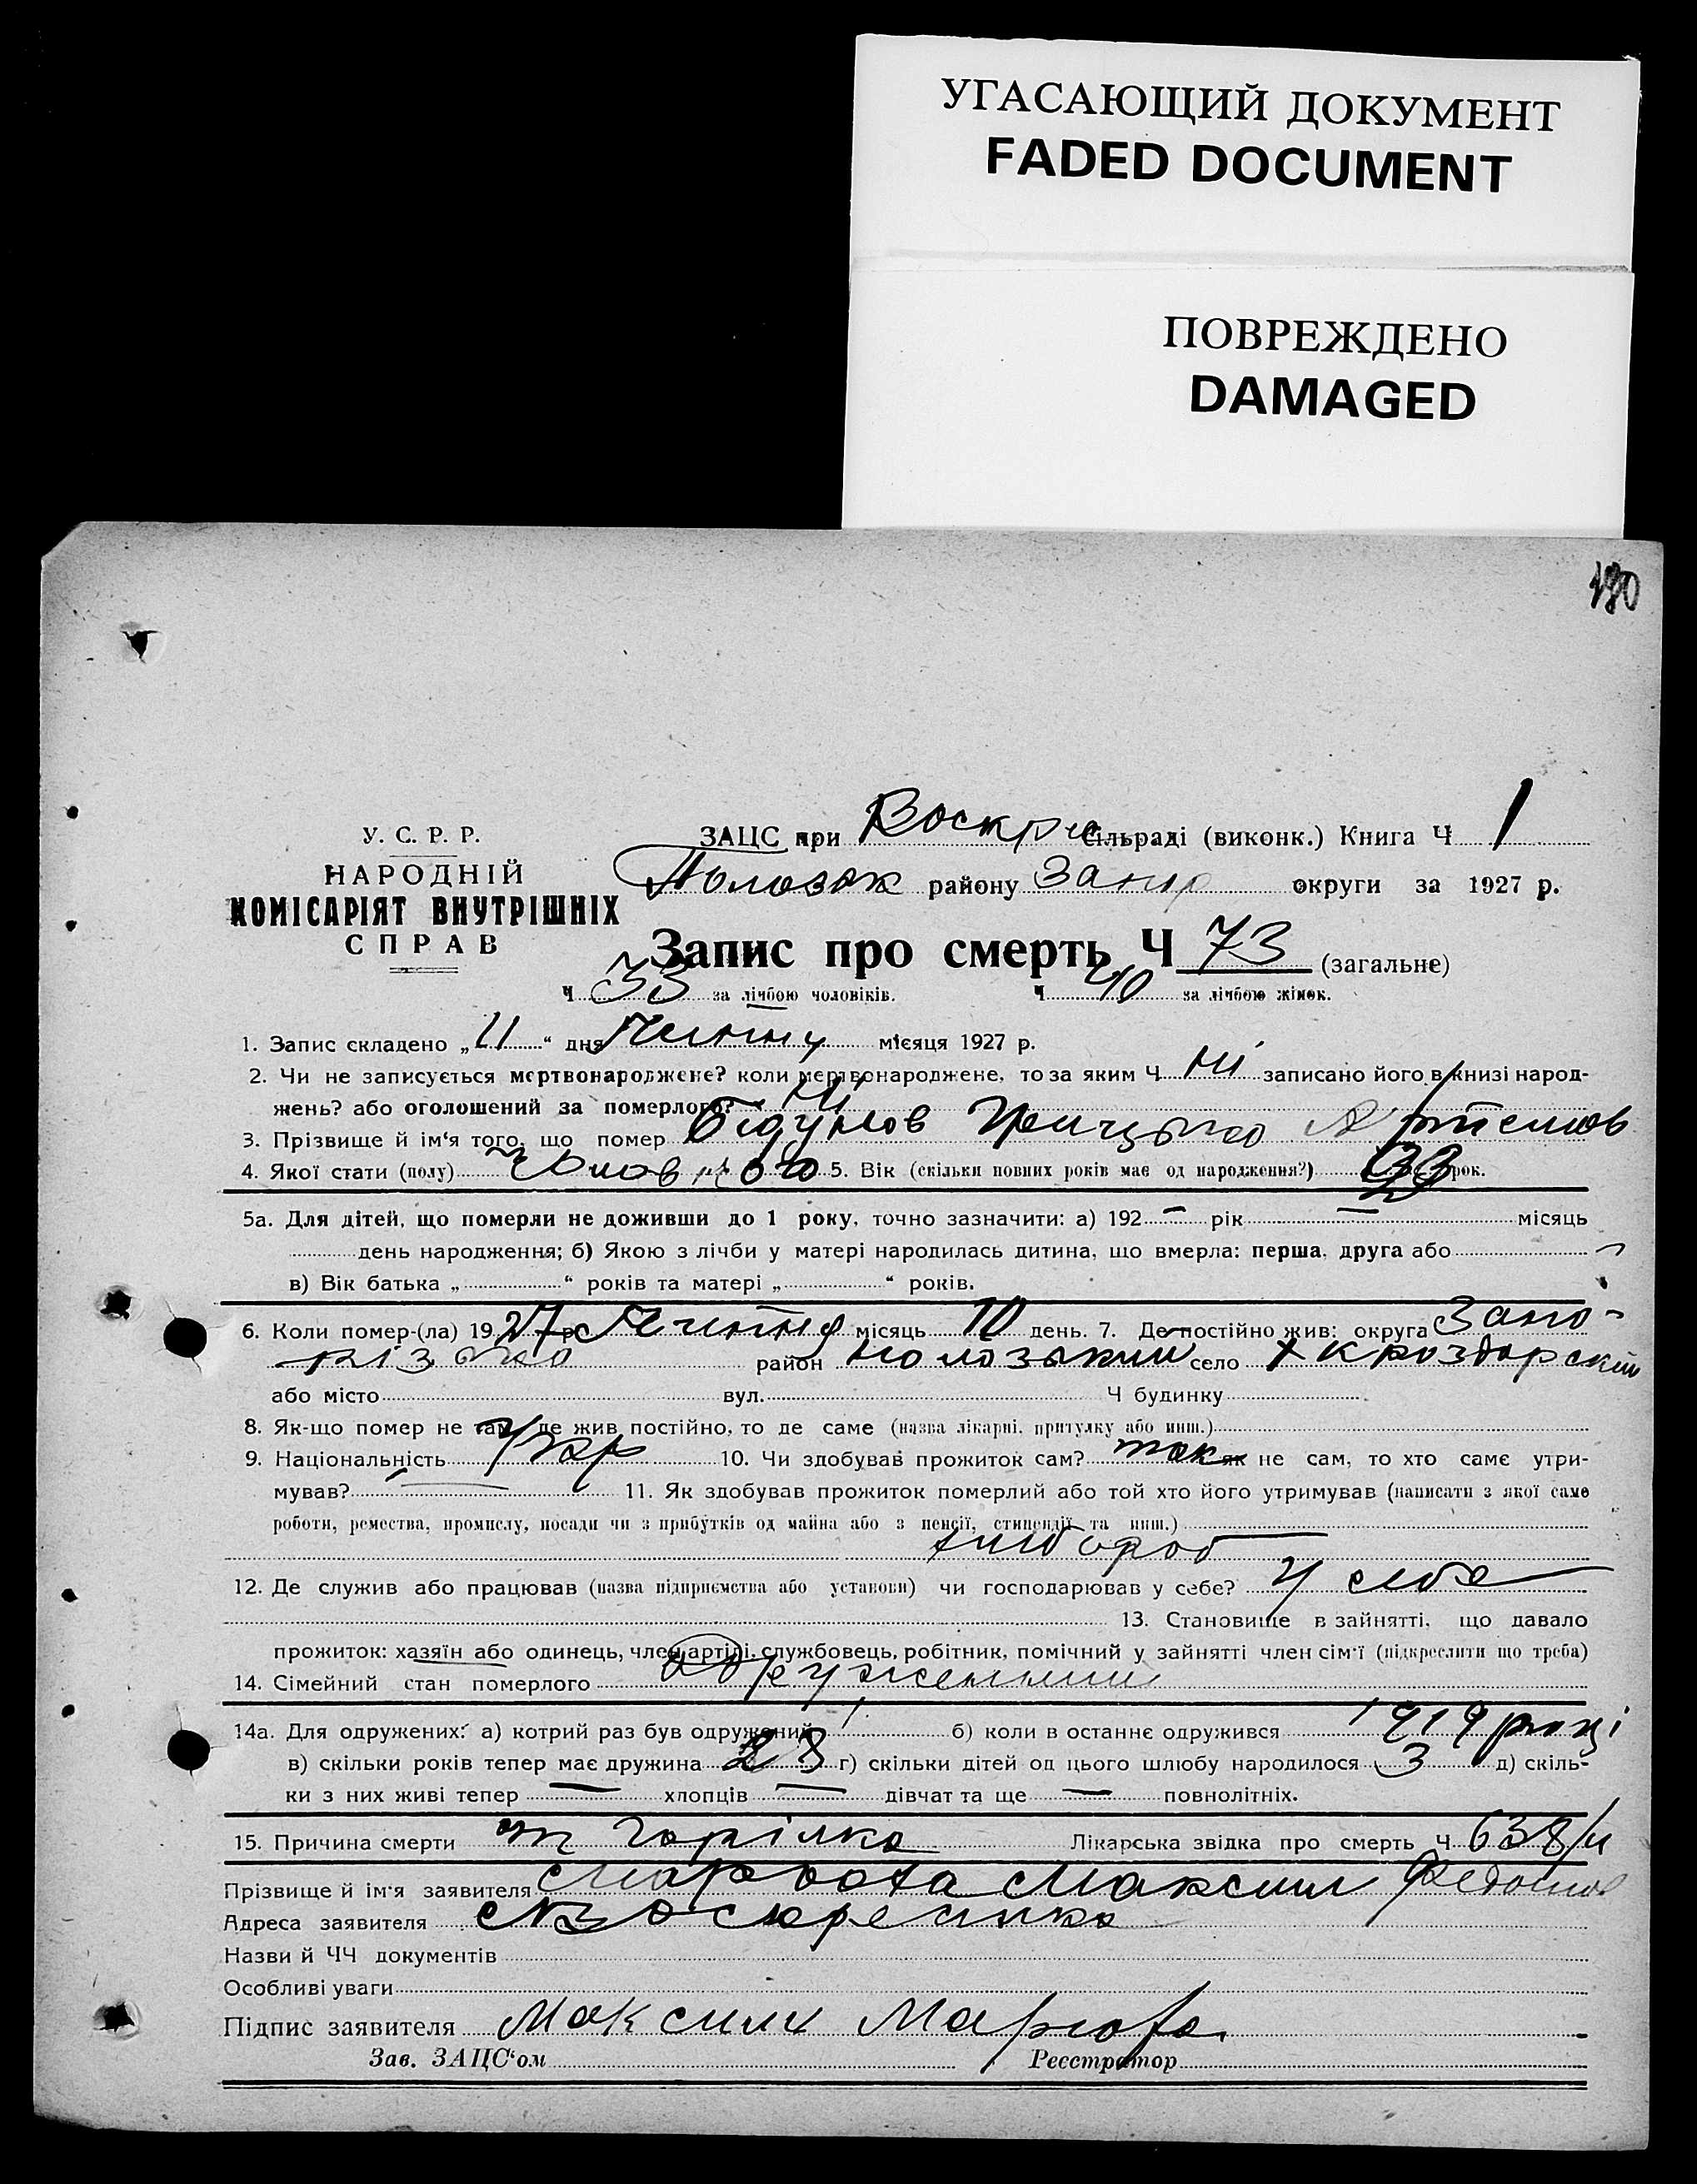 УГАСАЮЩИЙ ДОКУМЕНТ
FADED DOCUMENT
ПОВРЕЖДЕНО
DAMAGED
У. С. Р. Р.
НАРОДНІЙ
КОМІСАРІЯТ ВНУТРІШНІХ
СПРАВ
ЗАЦС при Воскре сільраді (виконк.) Книга Ч 1
Полозьк району Запор округи за 1927 р.
Запис про смерть Ч 73 (загальне)
Ч 33 за лічбою чоловіків. Ч 40 за лічбою жінок.
1. Запис складено „11“ дня місяця 1927 р.
2. Чи не записується мертвонароджене? коли мертвонароджене, то за яким Ч Ні записано його в книзі народ-
жень? або оголошений за померлого? Ні
3. Прізвище й ім‘я того, що помер Артемов
4. Якої стати (полу) 5. Вік (скільки повних років має од народження?) рок.
5а. Для дітей, що померли не доживши до 1 року, точно зазначити: а) 192 — рік — місяць
день народження; б) Якою з лічби у матері народилась дитина, що вмерла: перша, друга або
в) Вік батька „ “ років та матері „ “ років.
6. Коли помер-(ла) 1927 р. місяць 10 день. 7. Де постійно жив: округа Запо-
різька район Полозький село
або місто вул. Ч будинку
8. Як-що помер не там, де жив постійно, то де саме (назва лікарні, притулку або инш.)
9. Національність Укр 10. Чи здобував прожиток сам? так як не сам, то хто саме утри-
мував? — 11. Як здобував прожиток померлий або той хто його утримував (написати з якої саме
роботи, ремества, промислу, посади чи з прибутків од майна або з пенсії, стипендії та инш.)
хлібороб
12. Де служив або працював (назва підприємства або установи) чи господарював у себе? У себе
13. Становище в зайнятті, що давало
прожиток: хазяїн або одинець, член артілі, службовець, робітник, помічний у зайнятті член сім‘ї (підкреслити що треба)
14. Сімейний стан померлого одружений
14а. Для одружених: а) котрий раз був одружений 1 б) коли в останнє одружився 1919 році
в) скільки років тепер має дружина 28 г) скільки дітей од цього шлюбу народилося 3 д) скіль-
ки з них живі тепер — хлопців — дівчат та ще — повнолітніх.
15. Причина смерти от горілки Лікарська звідка про смерть Ч
Прізвище й ім‘я заявителя Максим Федосов
Адреса заявителя
Назви й ЧЧ документів
Особливі уваги
Підпис заявителя Максим
Зав. ЗАЦС‘ом Реєстратор